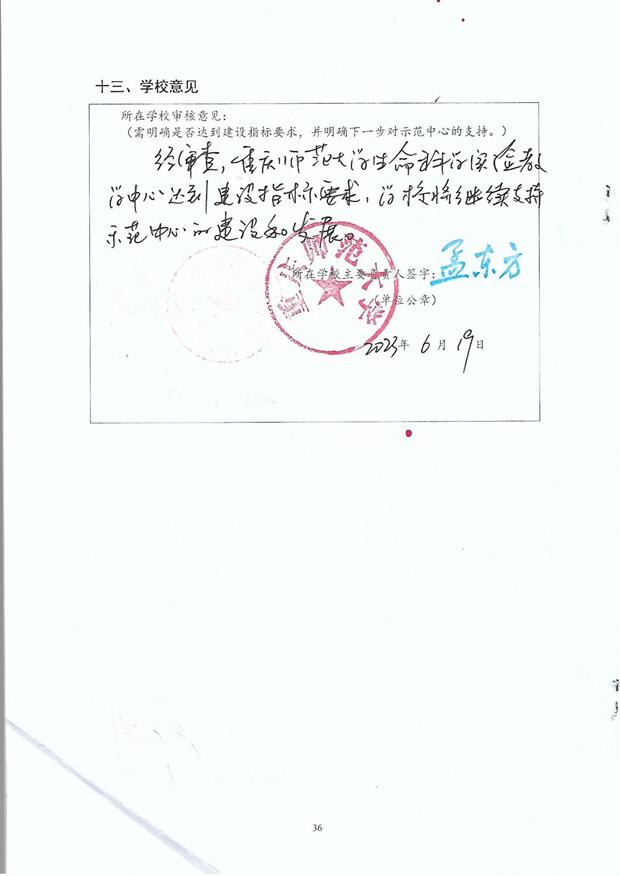 十三、学校意见
所在学校审核意见：
（需明确是否达到建设指标要求，并明确下一步对示范中心的支持。）
经审查，重庆师范大学生命科学实验教
学中心达到建设指标要求，学校将继续支持
示范中心的建设和发展。
重庆师范大学
所在学校主要负责人签字：孟东方
（单位公章）
2023年 6 月 19 日
36